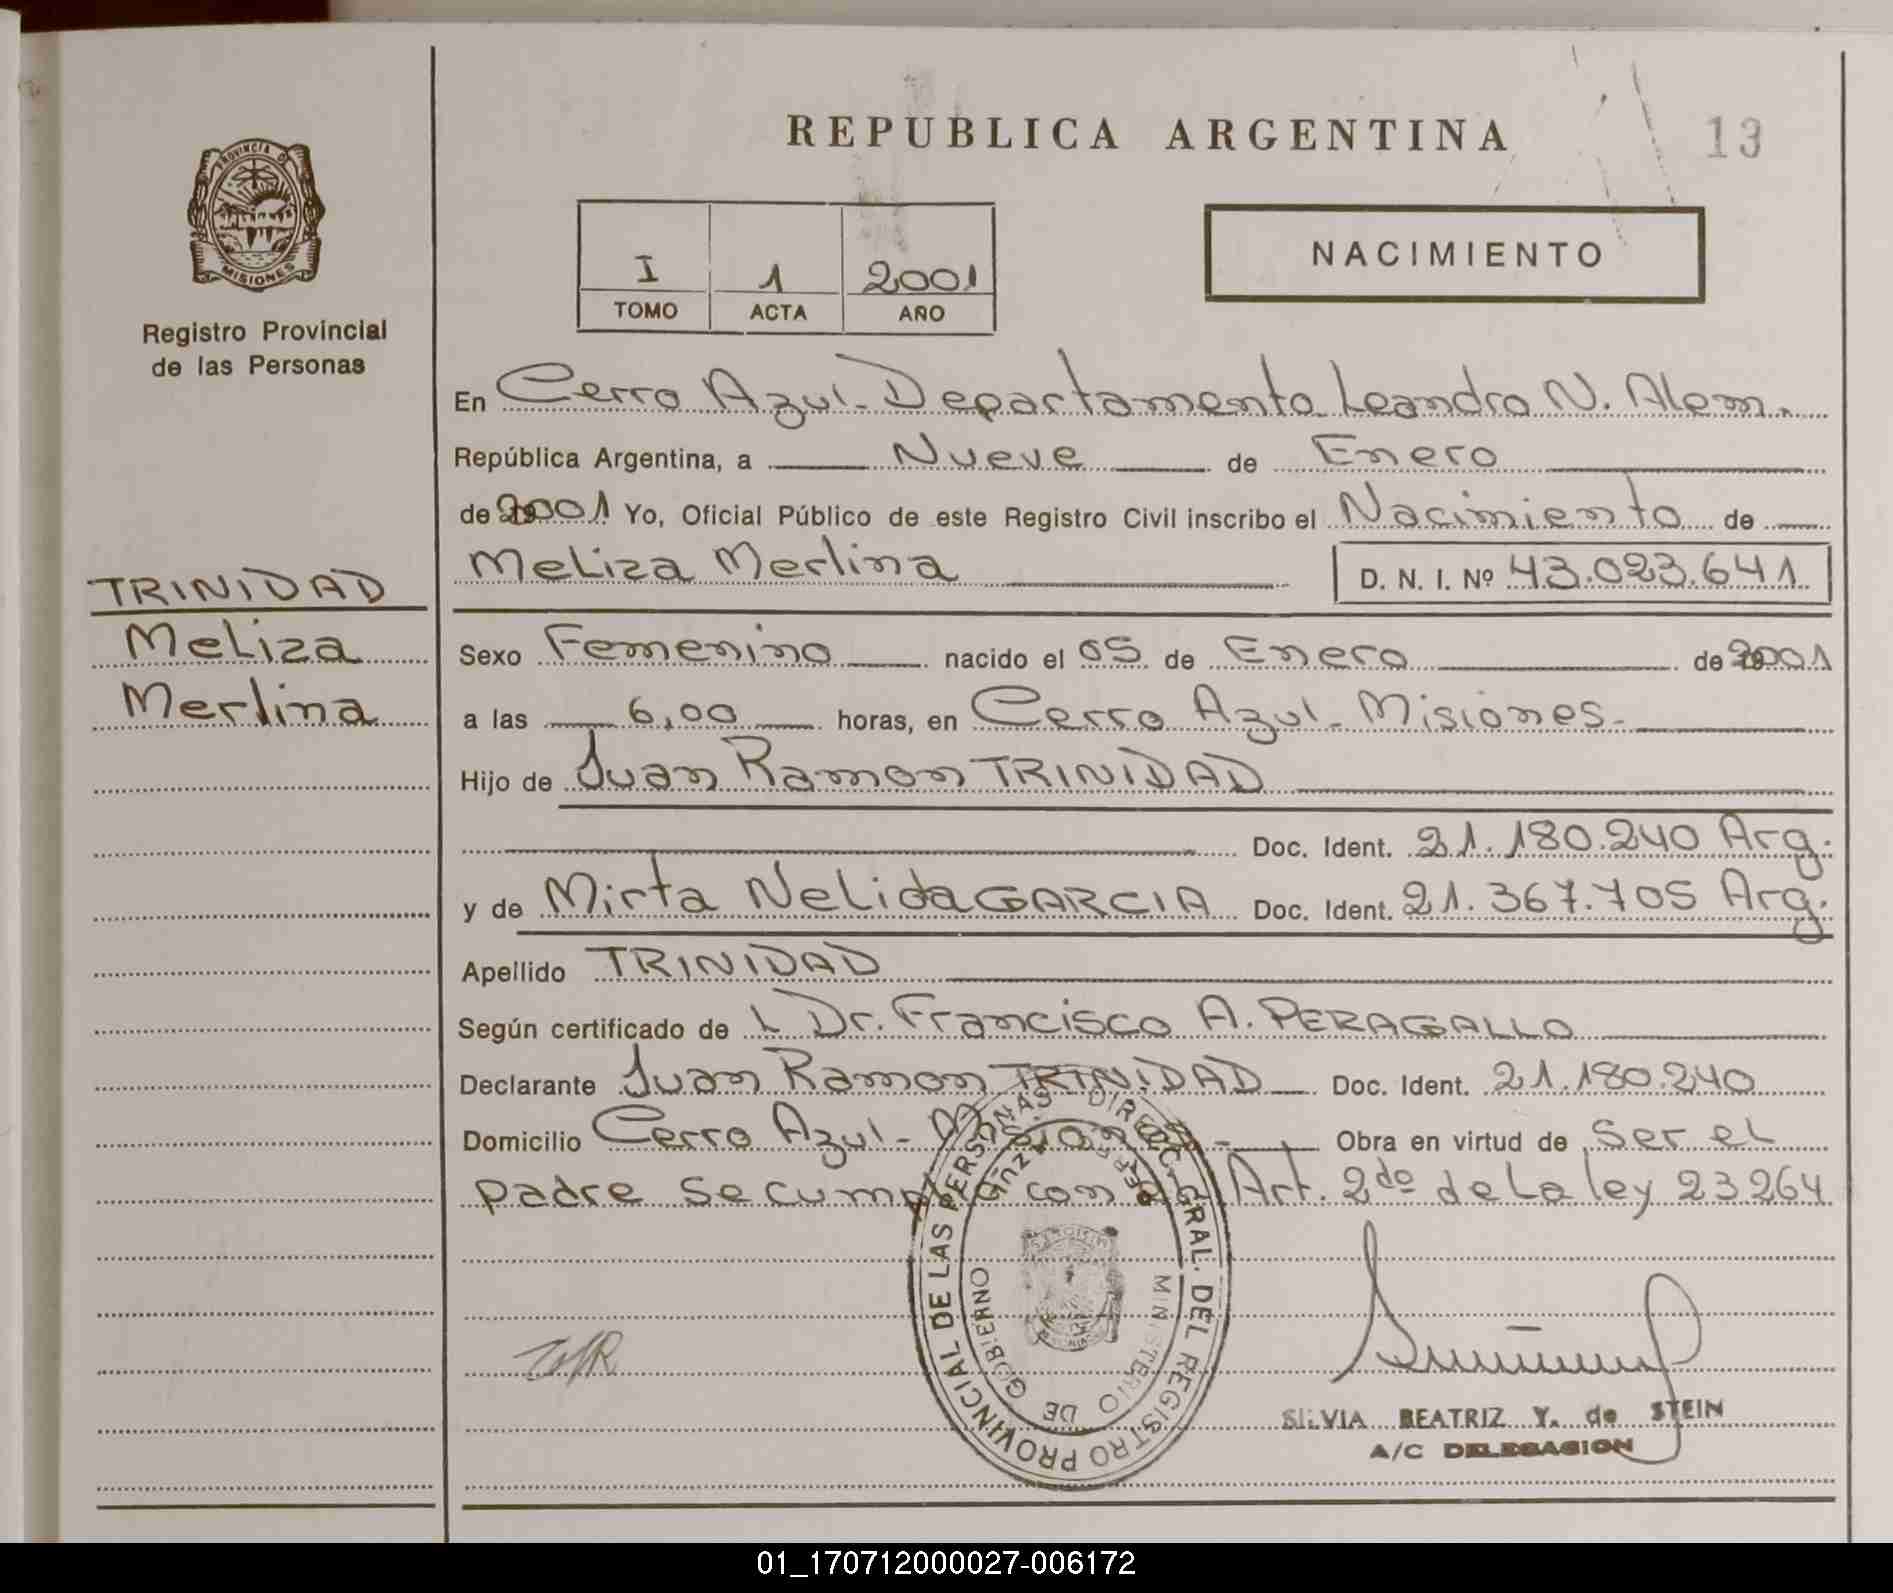 REPUBLICA ARGENTINA
13
PROVINCIA DE
MISIONES
Registro Provincial
de las Personas
I 1 2001
TOMO ACTA AÑO
NACIMIENTO
En Cerro Azul - Departamento Leandro N. Alem.
República Argentina, a Nueve de Enero
de 2001 Yo, Oficial Público de este Registro Civil inscribo el Nacimiento de
Meliza Merlina D. N. I. Nº 43.023.641
TRINIDAD
Meliza
Merlina
Sexo Femenino nacido el 05 de Enero de 2001
a las 6,00 horas, en Cerro Azul - Misiones -
Hijo de Juan Ramon TRINIDAD
Doc. Ident. 21.180.240 Arg.
y de Mirta Nelida GARCIA Doc. Ident. 21.367.705 Arg.
Apellido TRINIDAD
Según certificado de L Dr. Francisco A. PERAGALLO
Declarante Juan Ramon TRINIDAD Doc. Ident. 21.180.240
Domicilio Cerro Azul - Misiones - Obra en virtud de Ser el
padre Se cumplio con el Art. 2do de La ley 23264
DIREC. GRAL. DEL REGISTRO PROVINCIAL DE LAS PERSONAS
MINISTERIO DE GOBIERNO
CERRO AZUL
SILVIA BEATRIZ Y. de STEIN
A/C DELEGACION
01_170712000027-006172